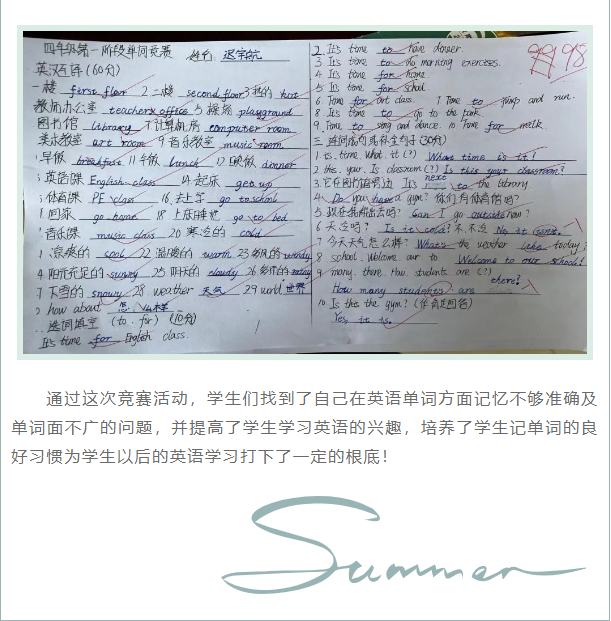 四年级第一阶段单词竞赛 姓名: 迟宇航
英汉互译(60分)
一楼 first floor 2 二楼 second floor 3 我的
教师办公室 teachers office 5 操场 playground
图书馆 library 7 计算机房 computer room
美术教室 art room 9 音乐教室 music room
早餐 breakfast 11 午餐 lunch 12 晚餐 dinner
英语课 English class 14 起床 get up
体育课 PE class 16 去上学 go to school
回家 go home 18 上床睡觉 go to bed
音乐课 music class 20 寒冷的 cold
凉爽的 cool 22 温暖的 warm 23 多风的 windy
4 阳光充足的 sunny 25 阴天的 cloudy 26 多雨的 rainy
7 下雪的 snowy 28 weather 天气 29 world 世界
how about 怎么样
选词填空 (to, for) (10分)
It's time for English class.
2. It's time to have dinner.
3 It's time to do morning exercises.
4 It's time for home
5 It's time for school
6 Time for art class. 7 Time to jump and run.
8 It's time to go to the park.
9. Time to sing and dance. 10 Time for milk
三 连词成句或补全句子 (30分)
1 is. time. What. it (?) What time is it?
2 this. your. Is. classroom (?) Is this your classroom?
3 它在图书馆旁边 It's next to the library
4 Do you have a gym? 你们有体育馆吗?
5 现在我能出去吗? Can I go outside now?
6 天冷吗? Is it cold? 不, 不冷 No, it isn't.
7 今天天气怎么样? What's the weather like today?
8 school. Welcome. our. to Welcome to our school!
9 many. there. How. students. are (?)
How many students are there?
10 Is this the gym? (作肯定回答)
Yes, it is.
98
通过这次竞赛活动,学生们找到了自己在英语单词方面记忆不够准确及
单词面不广的问题,并提高了学生学习英语的兴趣,培养了学生记单词的良
好习惯为学生以后的英语学习打下了一定的根底!
Summer